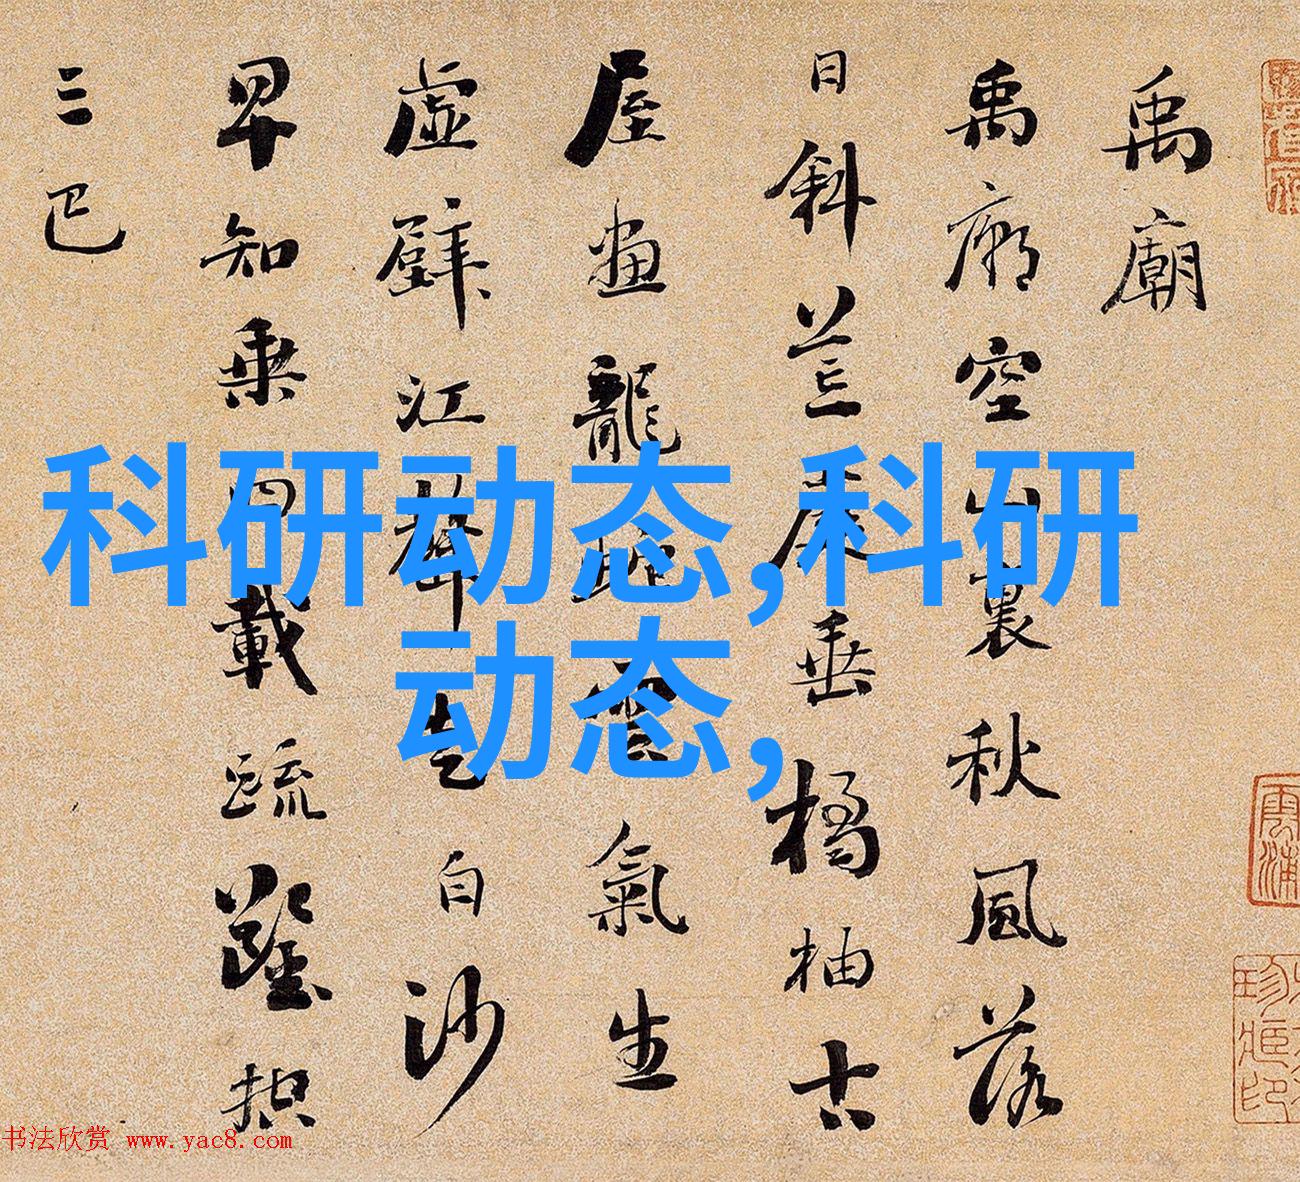 禹廟
禹廟空山裏秋風落
日斜荒庭垂橘柚古
屋畫龍蛇雲氣生
虛壁江聲走白沙
早知乘四載疏鑿控
三巴
科研动态,科研
动态,
书法欣赏 www.yac8.com